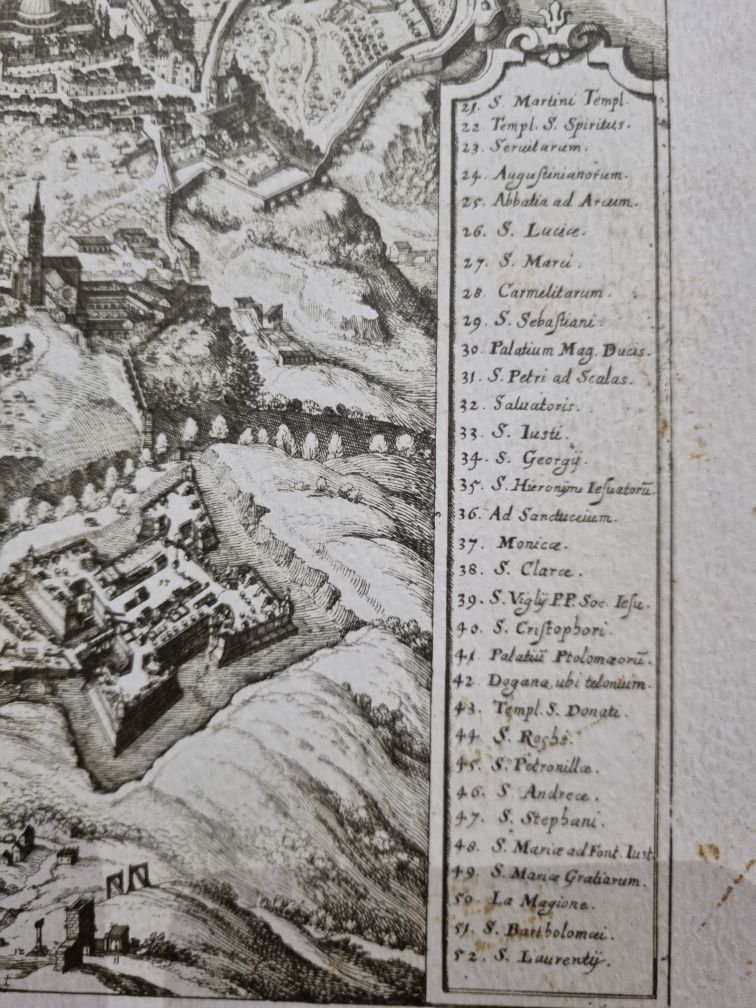 21. S. Martini Templ.
22 Templ. S. Spiritus.
23. Seruitarum.
24. Augustinianorum.
25. Abbatia ad Arcum.
26. S. Luciæ.
27. S. Marci.
28. Carmelitarum.
29. S. Sebastiani.
30. Palatium Mag. Ducis.
31. S. Petri ad Scalas.
32. Saluatoris.
33. S. Iusti.
34. S. Georgij.
35. S. Hieronymi Iesuatorū.
36. Ad Sanctuccium.
37. Monicæ.
38. S. Claræ.
39. S. Viglij P.P. Soc. Iesu.
40. S. Cristophori.
41. Palatiū Ptolomæorū.
42. Dogana, ubi telonium.
43. Templ. S. Donati.
44. S. Rochi.
45. S. Petronillæ.
46. S. Andreæ.
47. S. Stephani.
48. S. Mariæ ad Font. Iust.
49. S. Mariæ Gratiarum.
50. La Magione.
51. S. Bartholomæi.
52. S. Laurentij.